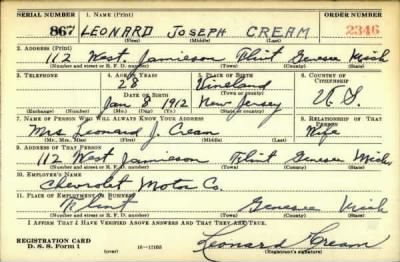 SERIAL NUMBER 1. NAME (Print) ORDER NUMBER
867 LEONARD JOSEPH CREAM 2346
(First) (Middle) (Last)
2. ADDRESS (Print)
112 West Jamieson Flint Genesee Mich
(Number and street or R. F. D. number) (Town) (County) (State)
3. TELEPHONE 4. AGE IN YEARS 5. PLACE OF BIRTH 6. COUNTRY OF CITIZENSHIP
28 Vineland
DATE OF BIRTH (Town or county)
Jan 8 1912 New Jersey U. S.
(Exchange) (Number) (Mo.) (Day) (Yr.) (State or country)
7. NAME OF PERSON WHO WILL ALWAYS KNOW YOUR ADDRESS 8. RELATIONSHIP OF THAT PERSON
Mrs Leonard J. Cream Wife
(Mr., Mrs., Miss) (First) (Middle) (Last)
9. ADDRESS OF THAT PERSON
112 West Jamieson Flint Genesee Mich
(Number and street or R. F. D. number) (Town) (County) (State)
10. EMPLOYER'S NAME
Chevrolet Motor Co.
11. PLACE OF EMPLOYMENT OR BUSINESS
Flint Genesee Mich
(Number and street or R. F. D. number) (Town) (County) (State)
I AFFIRM THAT I HAVE VERIFIED ABOVE ANSWERS AND THAT THEY ARE TRUE.
REGISTRATION CARD
D. S. S. Form 1 (over) 16—17105 Leonard Cream
(Registrant's signature)